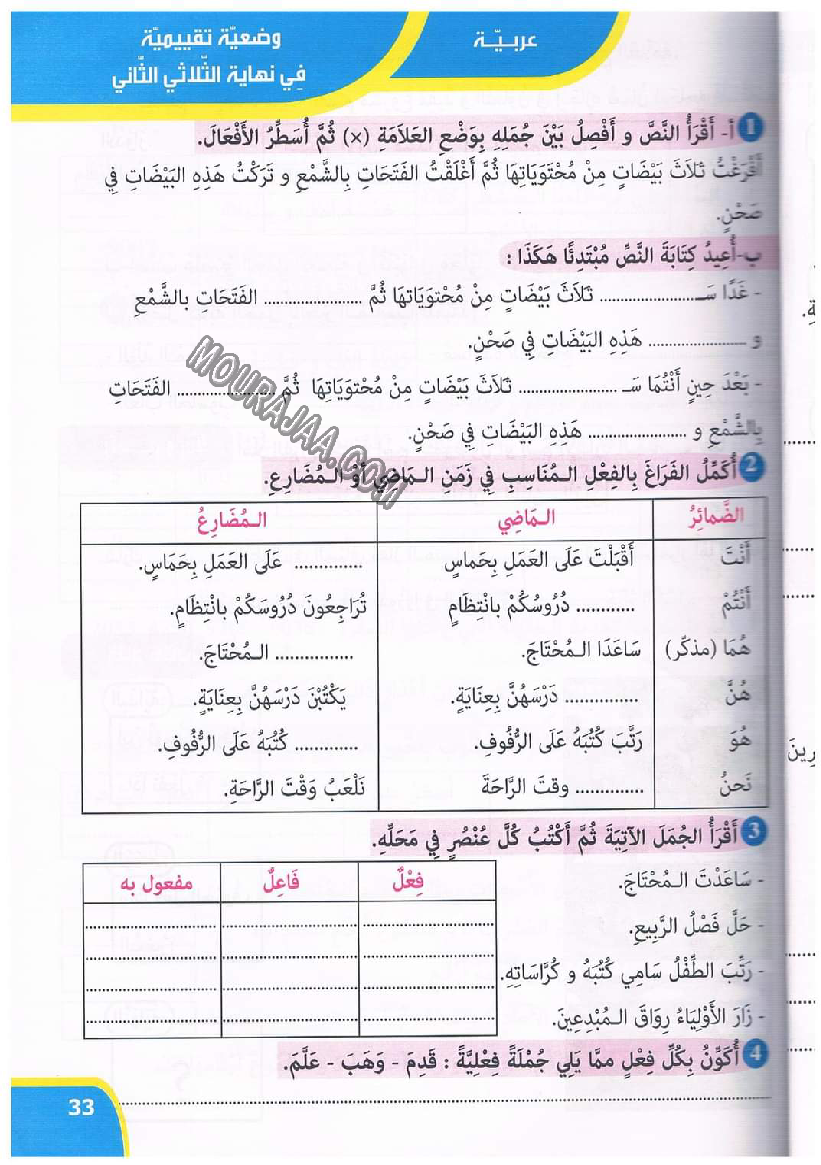 عربيّة
وضعيّة تقييميّة
في نهاية الثّلاثي الثّاني
1 أ- أَقْرَأُ النَّصَّ و أَفْصِلُ بَيْنَ جُمَلِهِ بِوَضْعِ العَلاَمَةِ (×) ثُمَّ أُسَطِّرُ الأَفْعَالَ.
أَفْرَغْتُ ثَلاَثَ بَيْضَاتٍ مِنْ مُحْتَوَيَاتِهَا ثُمَّ أَغْلَقْتُ الفَتَحَاتِ بِالشَّمْعِ و تَرَكْتُ هَذِهِ البَيْضَاتِ فِي
صَحْنٍ.
ب-أُعِيدُ كِتَابَةَ النَّصِّ مُبْتَدِئًا هَكَذَا :
- غَدًا سَـ........................ ثَلاَثَ بَيْضَاتٍ مِنْ مُحْتَوَيَاتِهَا ثُمَّ ...................... الفَتَحَاتِ بِالشَّمْعِ
و ...................... هَذِهِ البَيْضَاتِ فِي صَحْنٍ.
- بَعْدَ حِينٍ أَنْتُمَا سَـ ...................... ثَلاَثَ بَيْضَاتٍ مِنْ مُحْتَوَيَاتِهَا ثُمَّ ...................... الفَتَحَاتِ
بِالشَّمْعِ و ...................... هَذِهِ البَيْضَاتِ فِي صَحْنٍ.
MOURAJAA.COM
2 أُكَمِّلُ الفَرَاغَ بِالفِعْلِ الـمُنَاسِبِ فِي زَمَنِ الـمَاضِي أَوْ الـمُضَارِعِ.
الضَّمائِرُ الـمَاضِي الـمُضَارِعُ
أَنْتَ أَقْبَلْتَ عَلَى العَمَلِ بِحَماسٍ .............. عَلَى العَمَلِ بِحَمَاسٍ.
أَنْتُمْ ............ دُرُوسُكُمْ بانْتِظَامٍ تُرَاجِعُونَ دُرُوسَكُمْ بانْتِظَامٍ.
هُمَا (مذكّر) سَاعَدَا الـمُحْتَاجَ. ................ الـمُحْتَاجَ.
هُنَّ ............... دَرْسَهُنَّ بِعِنَايَةٍ. يَكْتُبْنَ دَرْسَهُنَّ بِعِنَايَةٍ.
هُوَ رَتَّبَ كُتُبَهُ عَلَى الرُّفُوفِ. ............. كُتُبَهُ عَلَى الرُّفُوفِ.
نَحنُ .............. وقتَ الرَّاحَةَ نَلْعَبُ وَقْتَ الرَّاحَةِ.
3 أَقْرَأُ الجُمَلَ الآتِيَةَ ثُمَّ أَكْتُبُ كُلَّ عُنْصُرٍ فِي مَحَلِّهِ.
فِعْلٌ فَاعِلٌ مفعول به
- سَاعَدْتَ الـمُحْتَاجَ.
- حَلَّ فَصْلُ الرَّبِيعِ.
- رَتَّبَ الطِّفْلُ سَامِي كُتُبَهُ و كُرَّاسَاتِهِ.
- زَارَ الأَوْلِيَاءُ رِوَاقَ الـمُبْدِعِينَ.
4 أُكَوِّنُ بِكُلِّ فِعْلٍ ممَّا يَلِي جُمْلَةً فِعْلِيَّةً : قَدِمَ - وَهَبَ - عَلَّمَ.
33